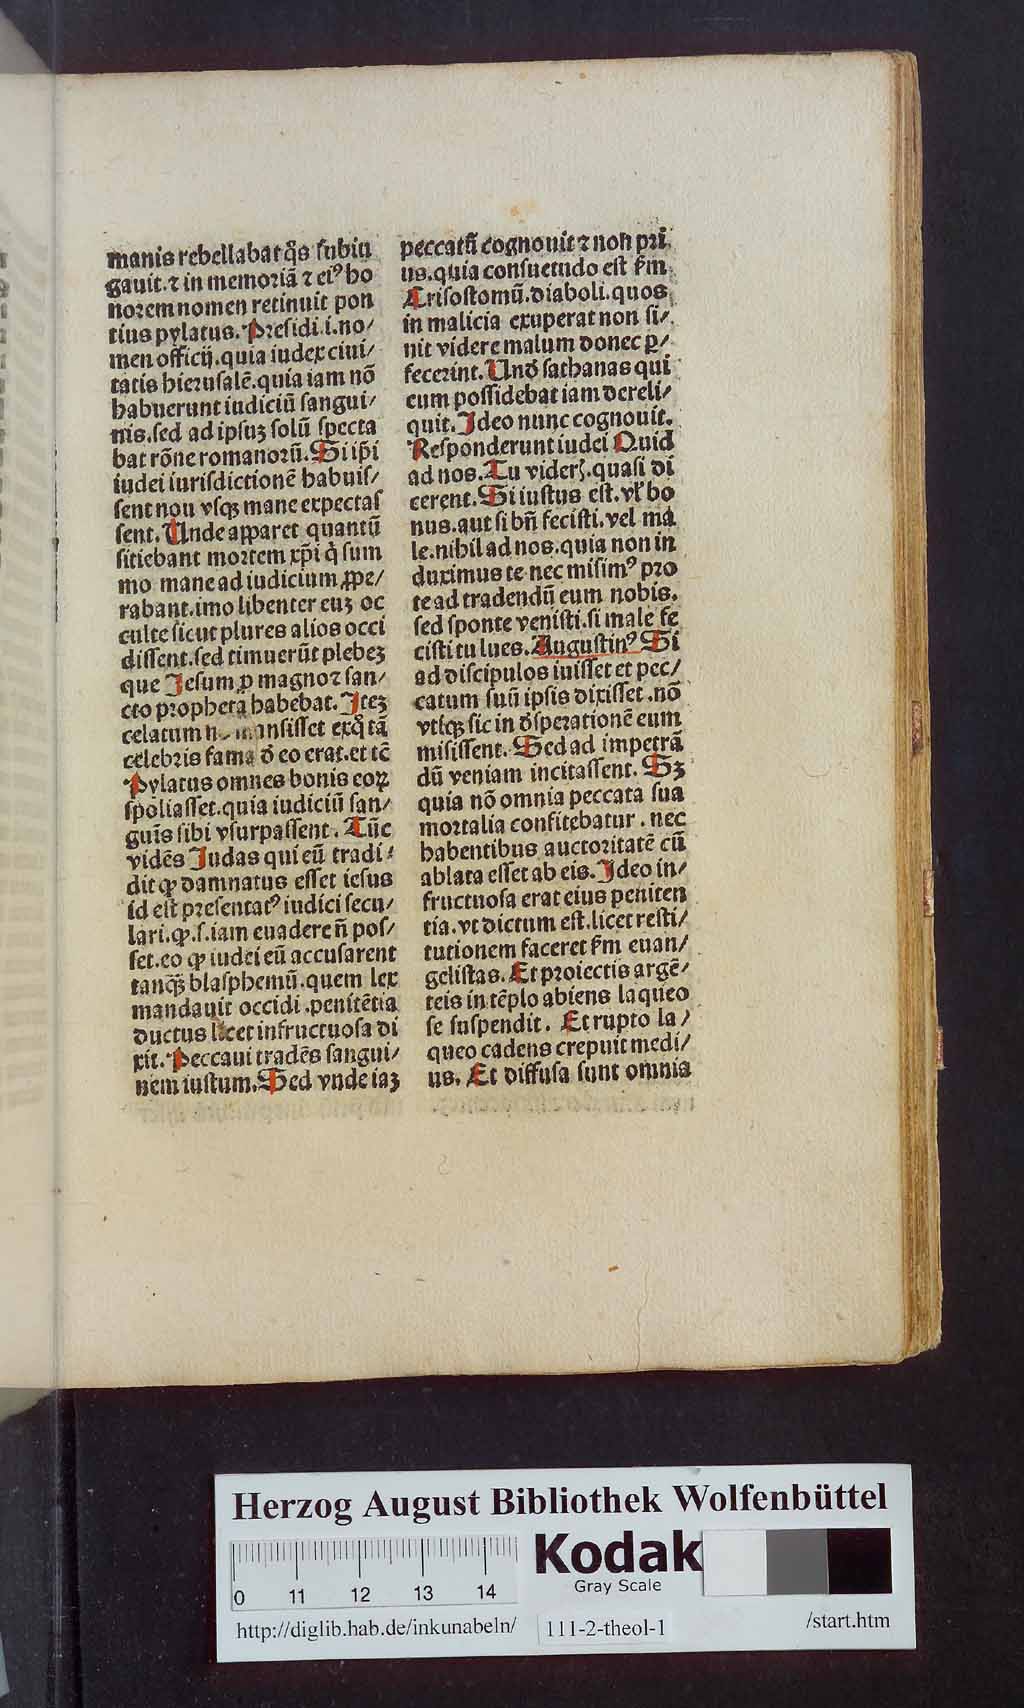 manis rebellabat q̊s subiu
gauit.⁊ in memoriã ⁊ eiꝰ ho
norem nomen retinuit pon
tius pylatus. Presidi.i.no/
men officij.quia iudex ciui/
tatis hierusalẽ.quia iam nõ
habuerunt iudiciũ sangui/
nis.sed ad ipsuꝫ solũ specta
bat rõne romanorũ. Si ip̃i
iudei iurisdictionẽ habuis/
sent nou vsqꝫ mane expectas
sent. Unde apparet quantũ
sitiebant mortem xp̃i q̇ sum
mo mane ad iudicium ꝓpe/
rabant.imo libenter euꝫ oc
culte sicut plures alios occi
dissent.sed timuerũt plebeꝫ
que Jesum ꝓ magno ⁊ san/
cto propheta habebat. Iteꝫ
celatum mansisset exq̊ tã
celebris fama đ eo erat.et tẽ
Pylatus omnes bonis eoꝝ
spoliasset.quia iudiciũ san/
guis̃ sibi vsurpassent. Tũc
vidẽs Judas qui eũ tradi/
dit ꝙ damnatus esset iesus
id est presentatꝰ iudici secu/
lari.ꝙ.s.iam euadere ñ pos/
set.eo ꝙ iudei eũ accusarent
tanqꝫ̃ blasphemũ.quem lex
mandauit occidi.penitẽtia
ductus licet infructuosa di
xit. Peccaui tradẽs sangui/
nem iustum. Sed vnde iaꝫ
peccatũ cognouit ⁊ non pri
us.quia consuetudo est s̃m
Crisostomũ.diaboli.quos
in malicia exuperat non si/
nit videre malum donec ꝑ/
fecerint. Unđ sathanas qui
eum possidebat iam dereli/
quit. Ideo nunc cognouit.
Responderunt iudei Quid
ad nos. Tu viderꝭ.quasi di
cerent. Si iustus est.vl̃ bo
nus.aut si bñ fecisti.vel ma
le.nihil ad nos.quia non in
duximus te nec misimꝰ pro
te ad tradendũ eum nobis.
sed sponte venisti.si male fe
cisti tu lues. Augustinꝰ Si
ad discipulos iuisset et pec/
catum suũ ipsis dixisset.nõ
vtiqꝫ sic in đsperationẽ eum
misissent. Sed ad impetrã
dũ veniam incitassent. Sꝫ
quia nõ omnia peccata sua
mortalia confitebatur. nec
habentibus auctoritatẽ cũ
ablata esset ab eis. Ideo in/
fructuosa erat eius peniten
tia.vt dictum est.licet resti/
tutionem faceret s̃m euan/
gelistas. Et proiectis argẽ/
teis in tẽplo abiens laqueo
se suspendit. Et rupto la/
queo cadens crepuit medi/
us. Et diffusa sunt omnia
Herzog August Bibliothek Wolfenbüttel
0 11 12 13 14
Kodak
Gray Scale
http://diglib.hab.de/inkunabeln/ 111-2-theol-1 /start.htm